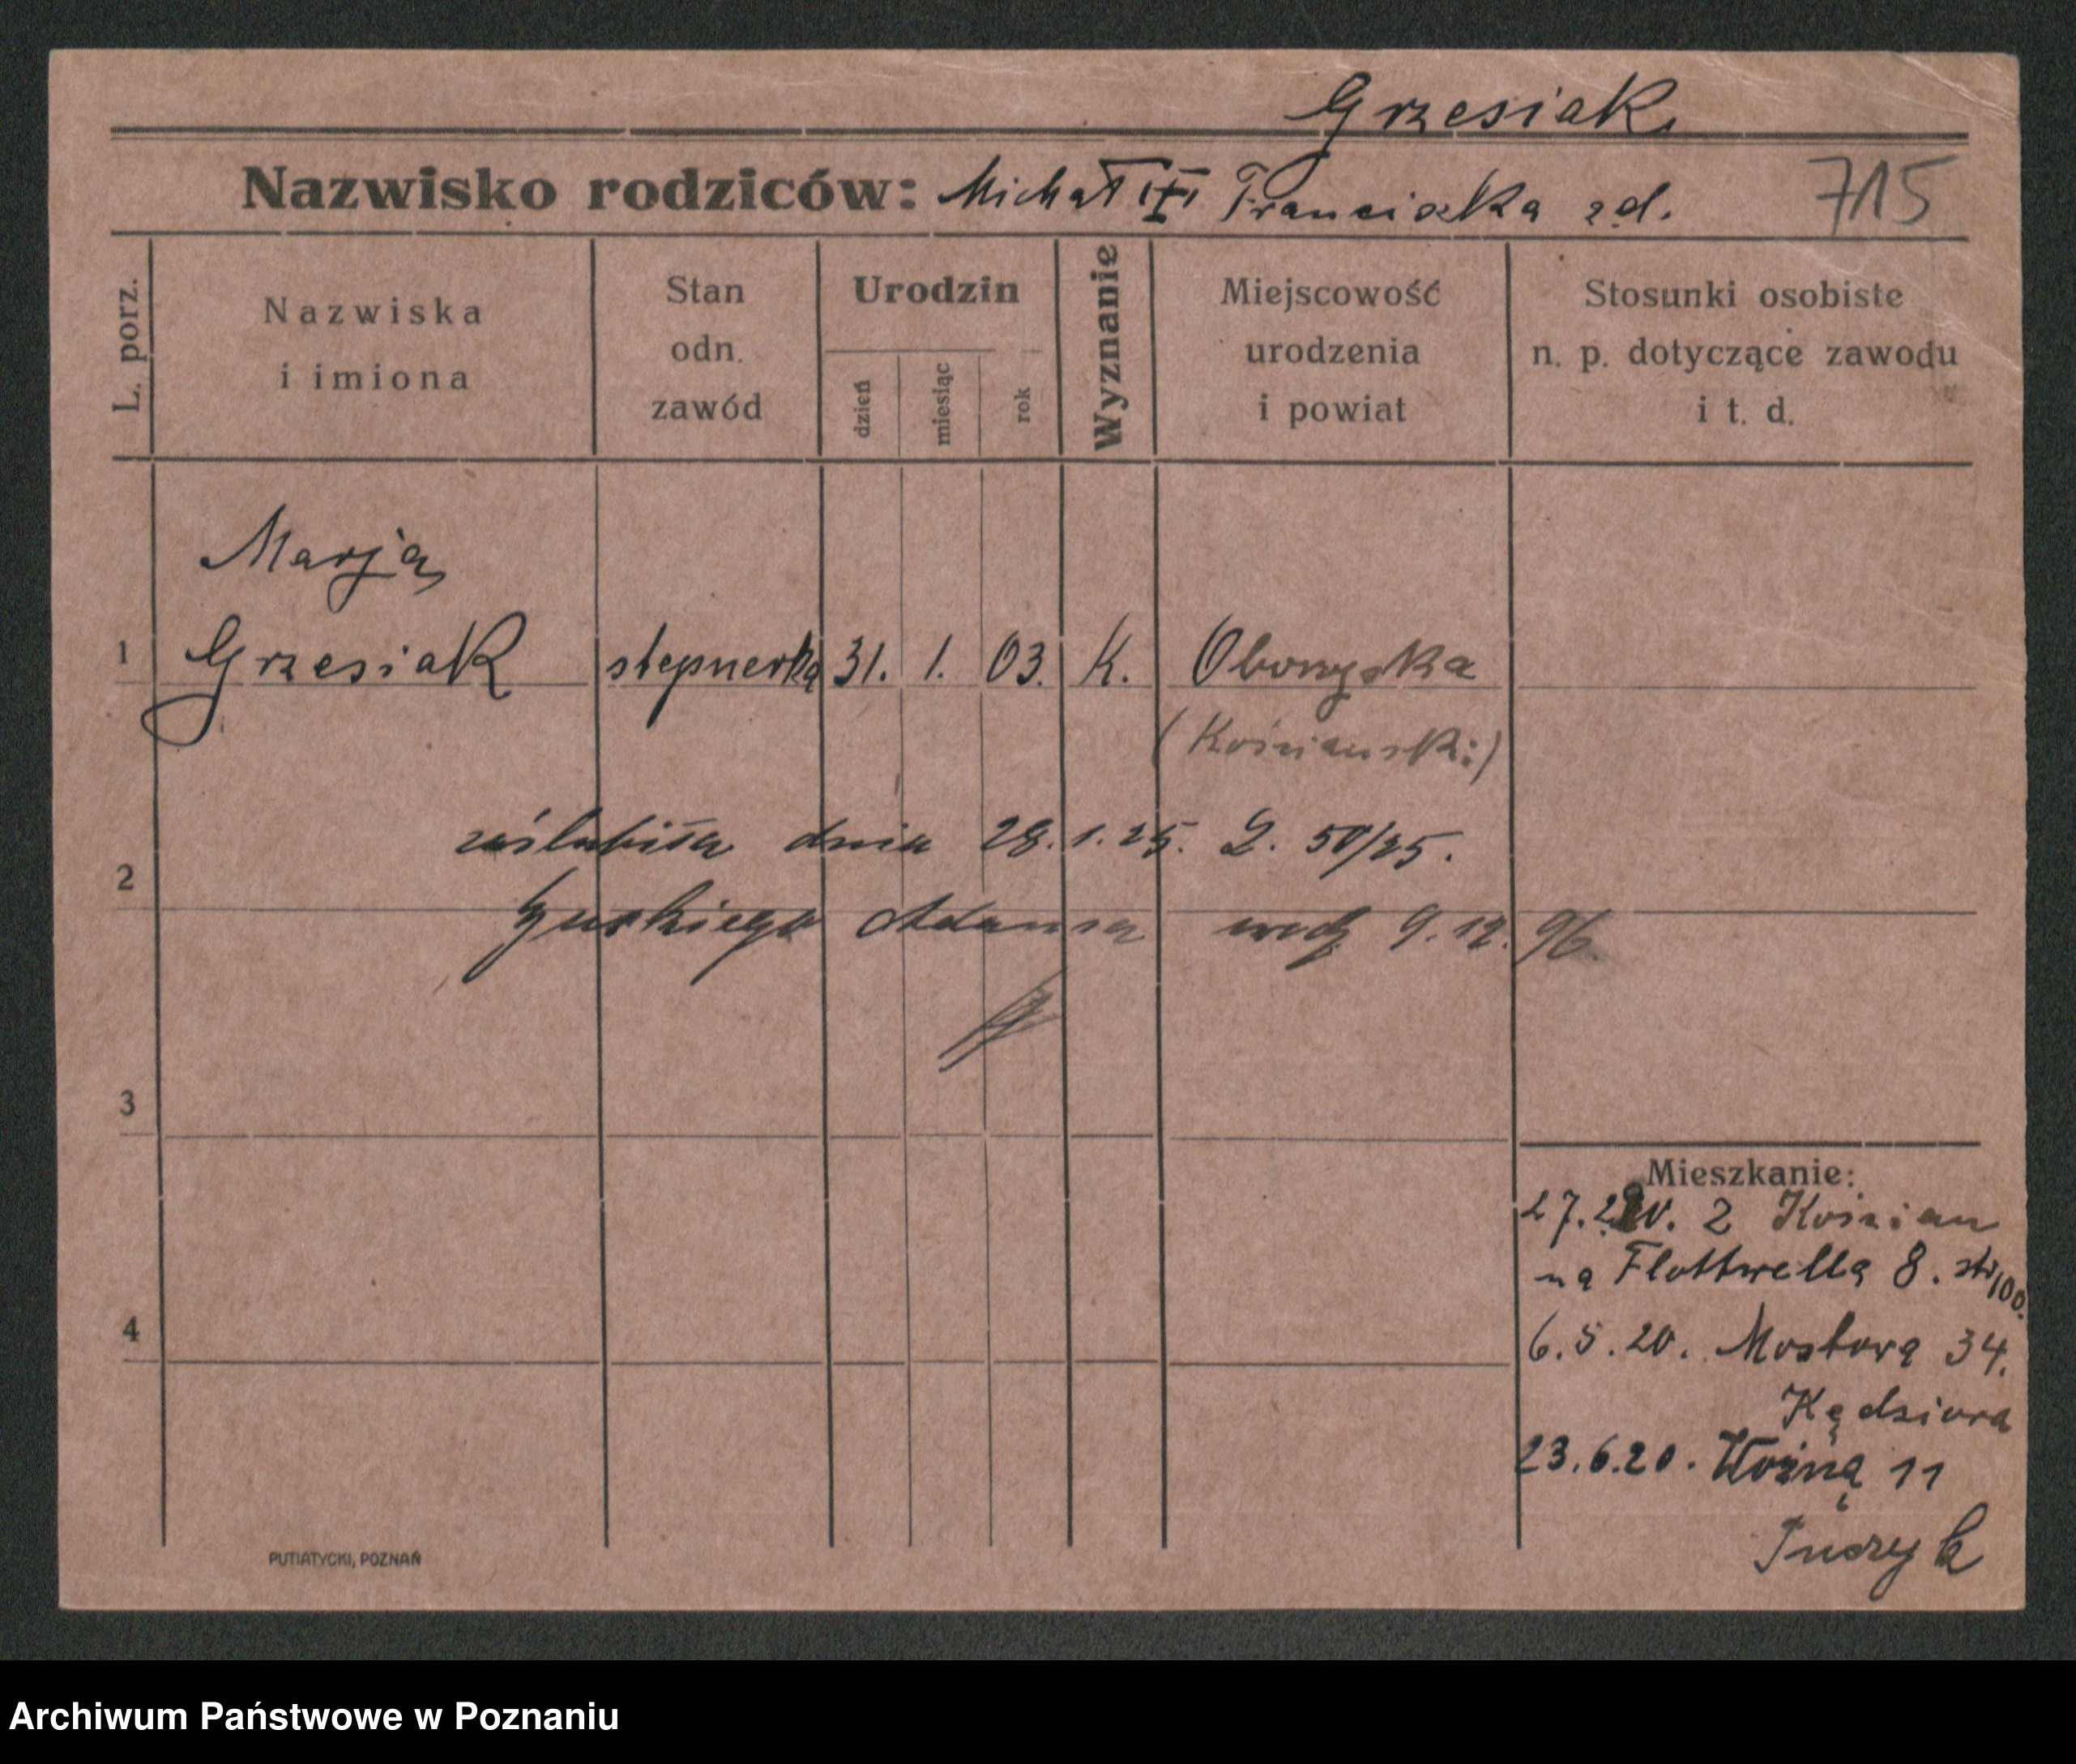 Grzesiak
Nazwisko rodziców: Michał Franciszka zd. 715
L. porz.
Nazwiska
i imiona
Stan
odn.
zawód
Urodzin
dzień
miesiąc
rok
Wyznanie
Miejscowość
urodzenia
i powiat
Stosunki osobiste
n. p. dotyczące zawodu
i t. d.
Marja
1 Grzesiak stepnerka 31. 1. 03. K.
(Kościański)
zaślubiła dnia 28. 1. 25. L. 50/25.
2
Adama urodz 9. 12. 96.
3
4
Mieszkanie:
27. 2 Kościan
na Flottwella 8. str 100.
6. 5. 20. Mostowa 34.
Kędziora
23. 6. 20. Woźna 11
PUTIATYCKI, POZNAŃ
Archiwum Państwowe w Poznaniu